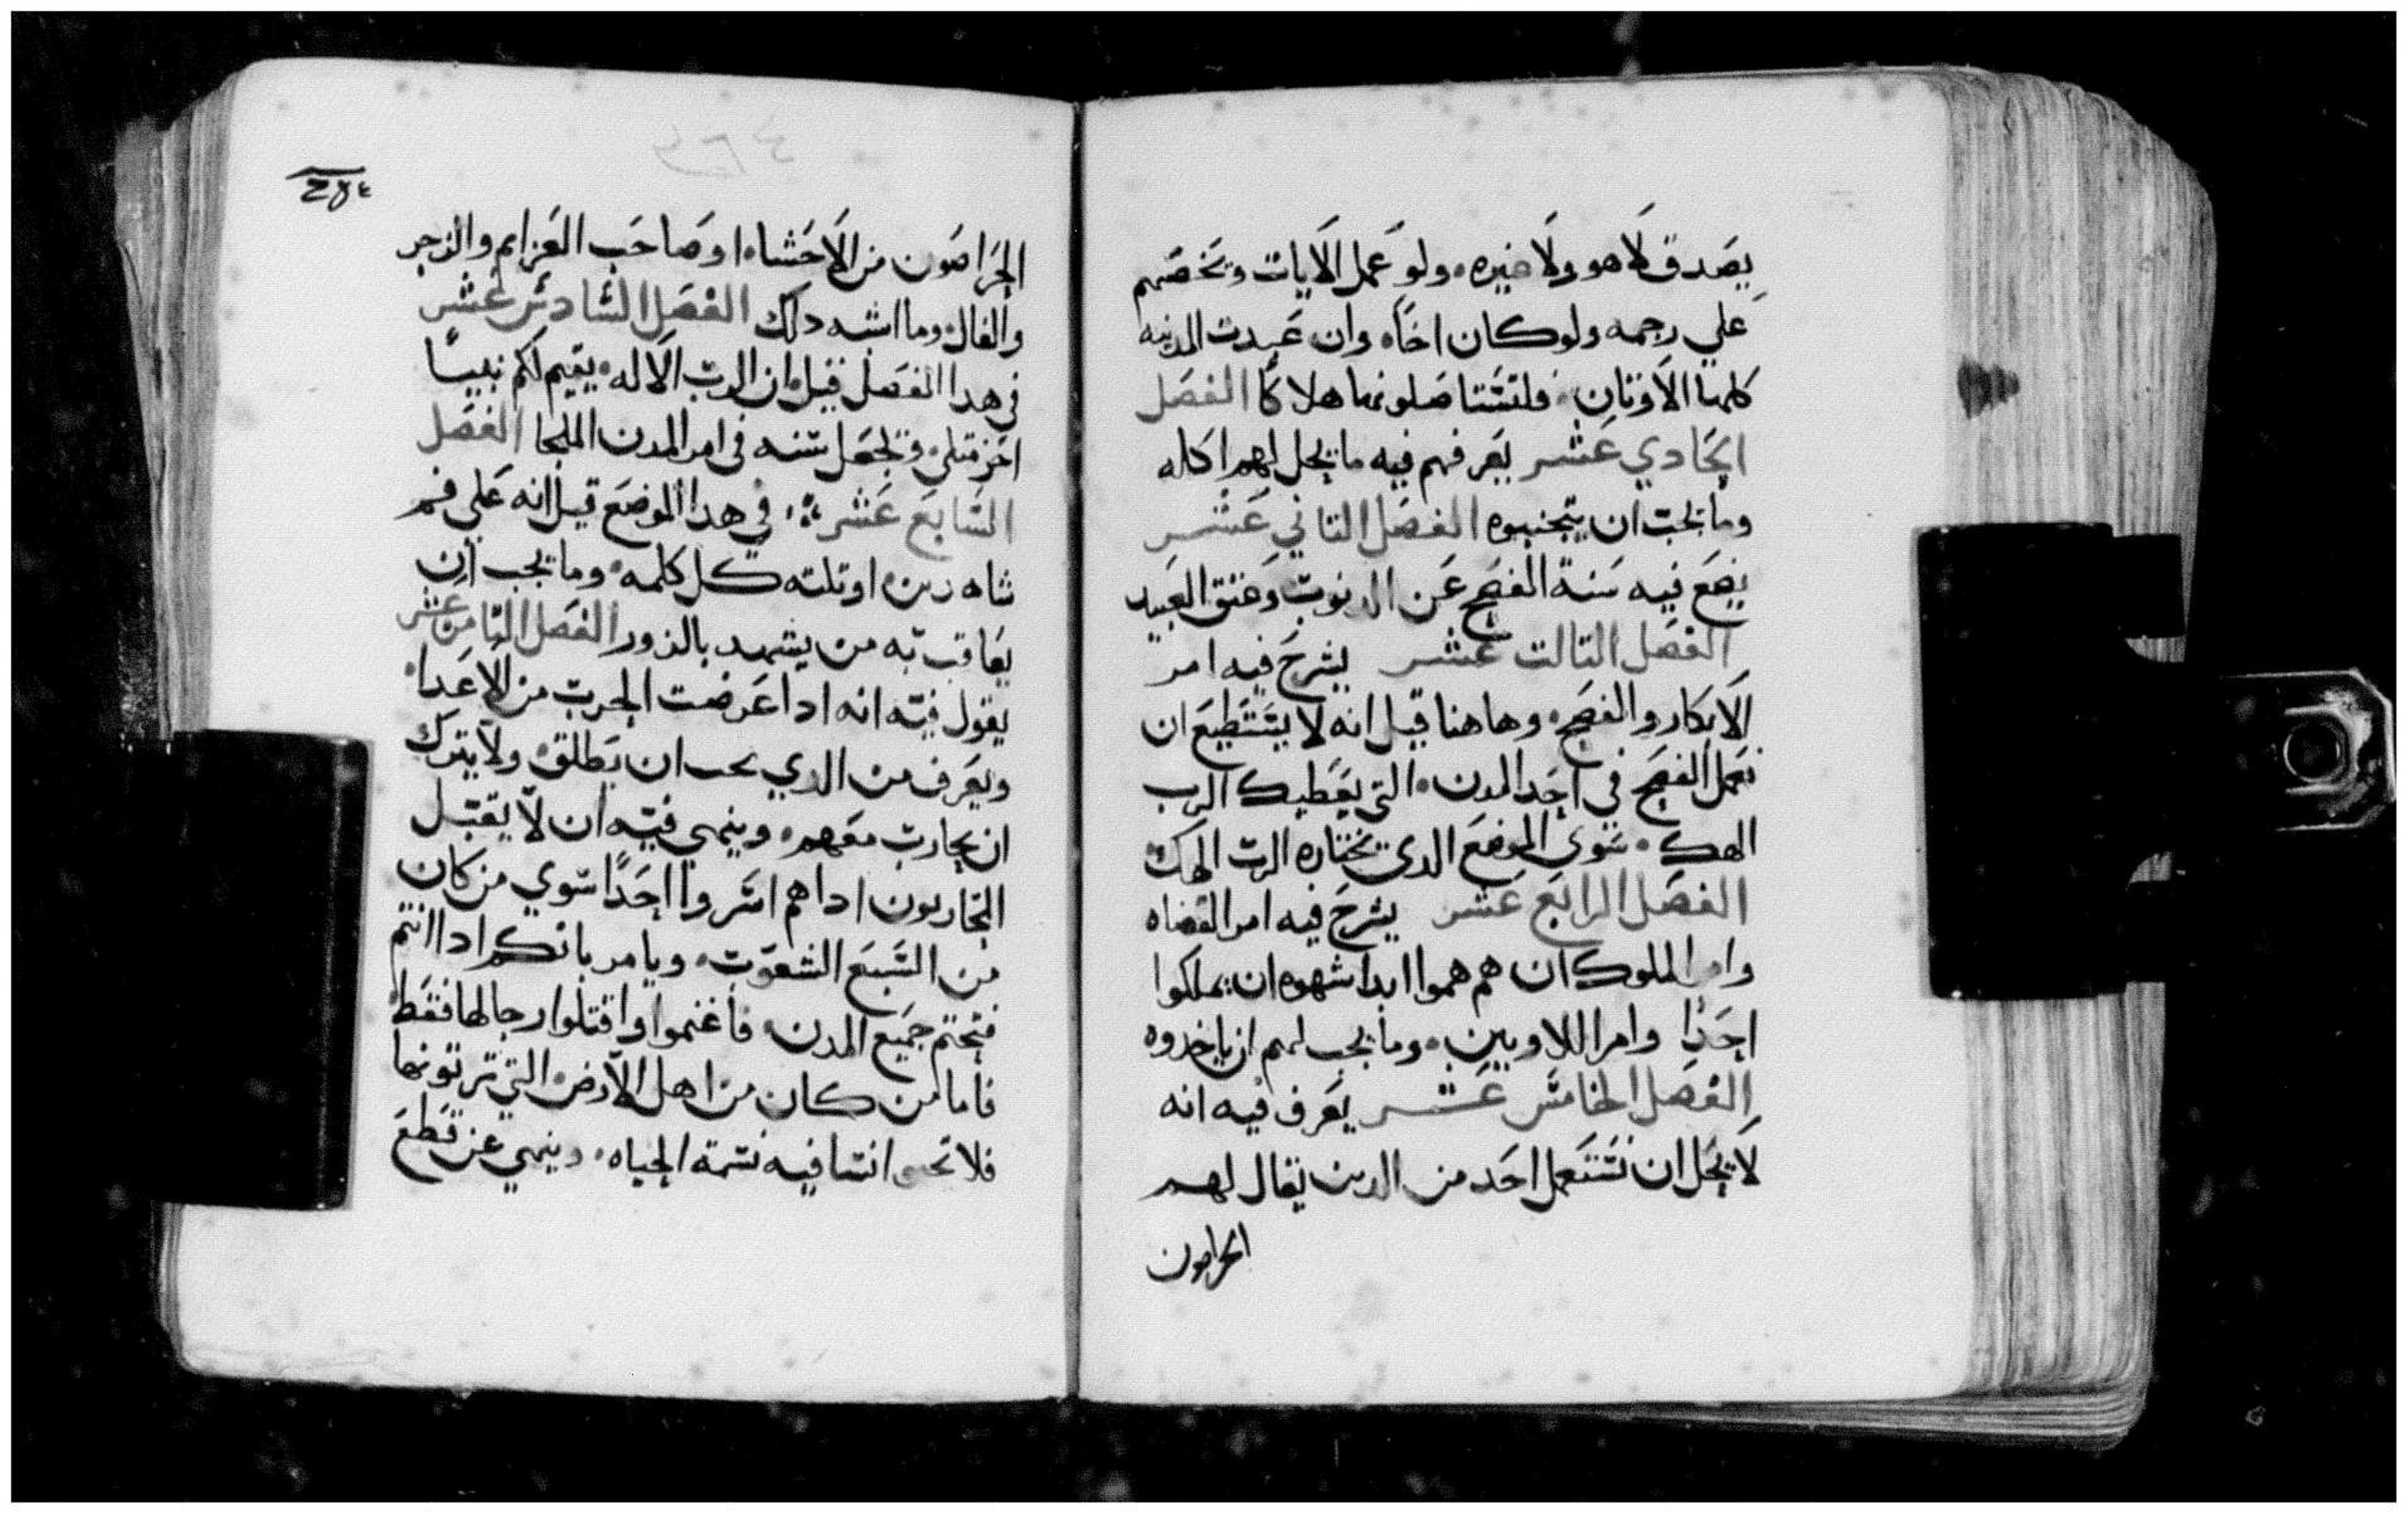 يصدق لا هو ولا خبره ولو عمل الايات ويحضهم
علي رجمه ولو كان اخاه وان عبدت المدينه
كلها الاوتان فلتستاصلونها هلاكا الفصل
الحادي عشر يعرفهم فيه ما يحل لهم اكله
وما يجب ان يتجنبوه الفصل التاني عشر
يضع فيه سنة الفصح عن الدنوب وعتق العبيد
الفصل التالت عشر يشرح فيه امر
الابكار والفصح وهاهنا قيل انه لا يستطيع ان
تعمل الفصح في احد المدن التي يعطيك الرب
الهك سوي الموضع الدي يختاره الرب الهك
الفصل الرابع عشر يشرح فيه امر القضاه
وامر الملوك ان هم هموا ابدا شهوه ان يملكوا
احدا وامر اللاويين وما يجب لهم ان ياخدوه
الفصل الخامس عشر يعرف فيه انه
لا يحل ان تستعمل احد من الدين يقال لهم
الحراصون
٢٨٤
الحراصون من الاحشاء او صاحب العزايم والزجر
والفال وما اشبه دلك الفصل السادس عشر
في هدا الفصل قيل ان الرب الاله يقيم لكم نبيا
اخر متلي وتجعل سنه في امر المدن الملجا الفصل
السابع عشر في هدا الموضع قيل انه علي فم
شاهدين او تلته كل كلمه وما يجب ان
يعاقب به من يشهد بالزور الفصل التامن عشر
يقول فيه انه ادا عرضت الحرب من الاعدا
ويعرف من الدي يجب ان يطلق ولا يترك
ان يحارب معهم وينهي فيه ان لا يقتل
المحاربون اداهم اسروا احدا سوي من كان
من السبع الشعوب ويامر بانكم ادا انتم
فتحتم جميع المدن فاغنموا واقتلوا رجالها فقط
فاما من كان من اهل الارض التي ترتونها
فلا تحيي انسا فيه نسمة الحياه وينهي عن قطع